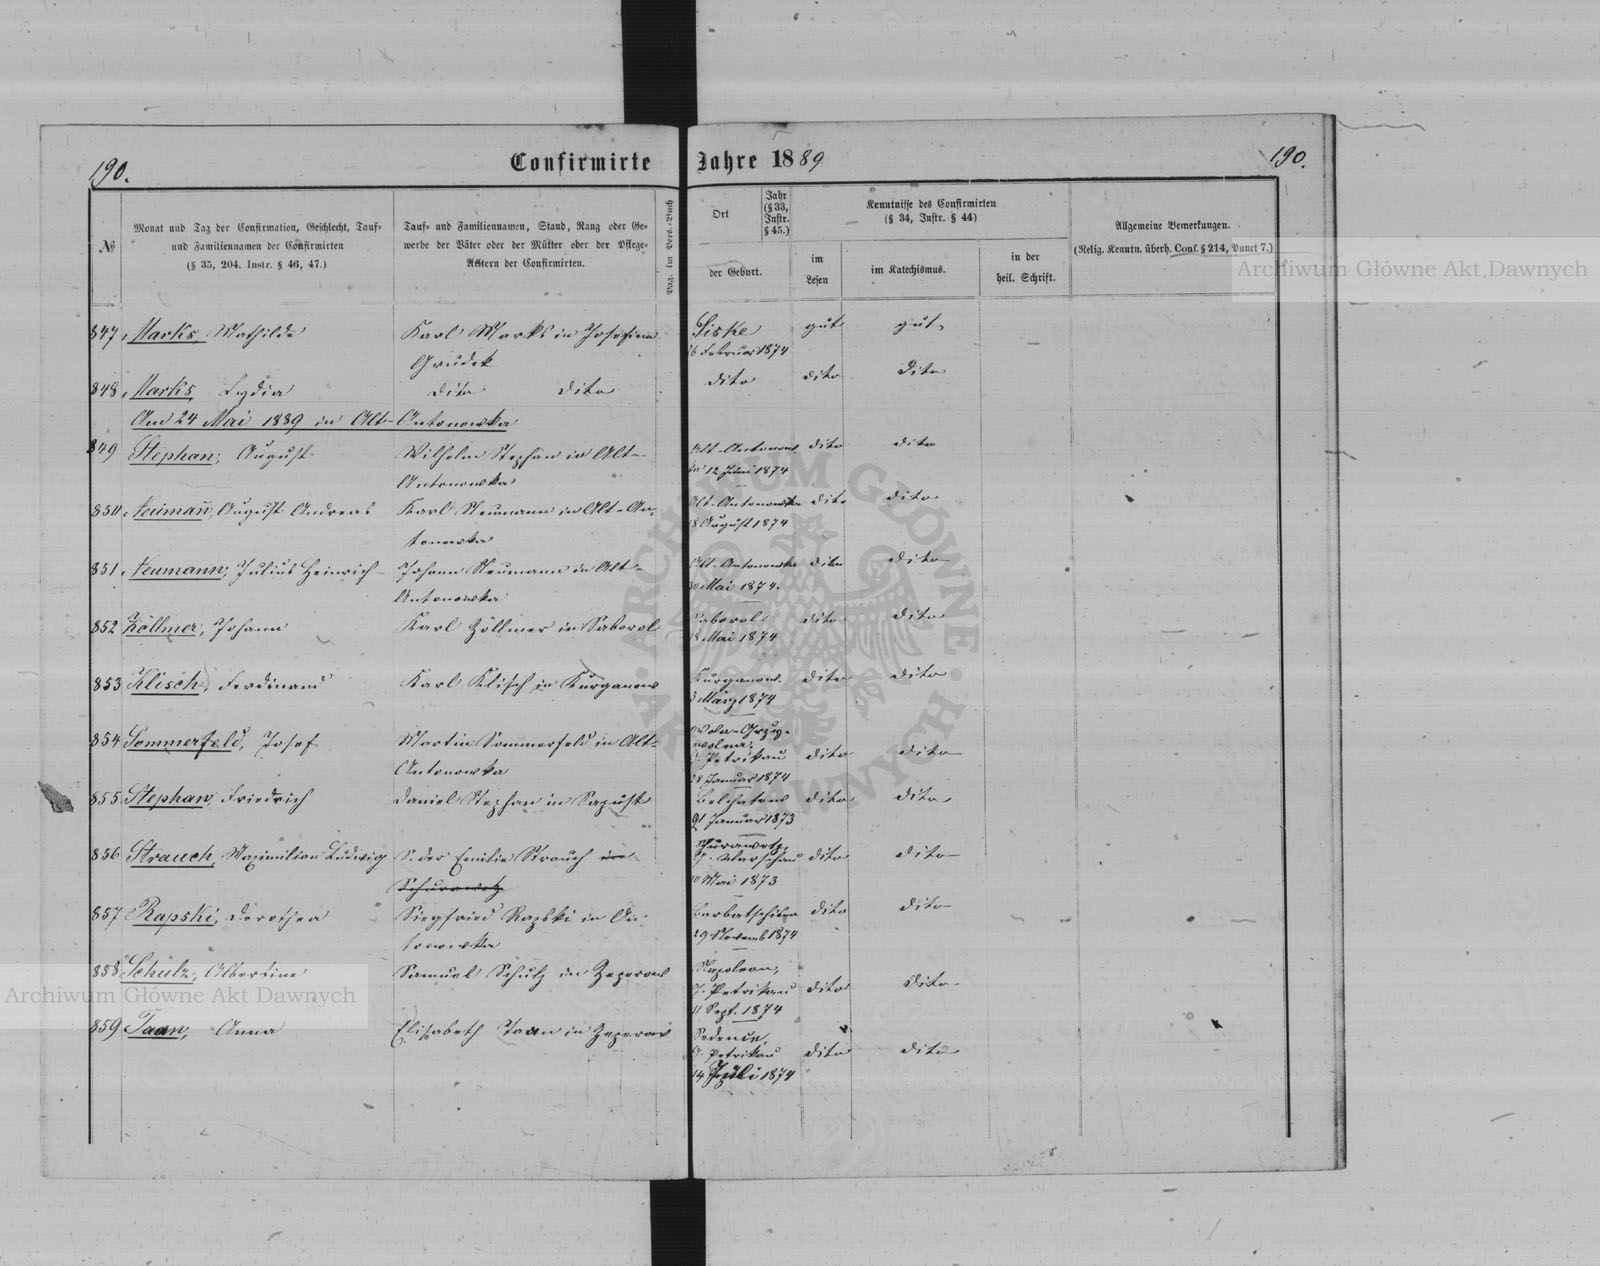 190.
Confirmirte Jahre 1889
190.
№
Monat und Tag der Confirmation, Geschlecht, Tauf-
und Familiennamen der Confirmirten
(§ 35, 204. Instr. § 46, 47.)
Tauf- und Familiennamen, Stand, Rang oder Ge-
werbe der Väter oder der Mütter oder der Pflege-
Aeltern der Confirmirten.
Pag. im Pers.-Buch
Ort
Jahr
(§ 33,
Instr.
§ 45.)
der Geburt.
Kenntnisse des Confirmirten
(§ 34, Instr. § 44)
im
Lesen
im Katechismus.
in der
heil. Schrift.
Allgemeine Bemerkungen.
(Relig. Kenntn. überh. Conf. § 214, Punct 7.)
847 Marks, Mathilde
Karl Marks in Josefinen
Grudek
Siske
Februar 1874
gut
gut
848 Marks, Lydia
dito dito
dito
dito
dito
Am 24 Mai 1889 in Alt-Antonowka
849 Stephan, August
Wilhelm Stephan in Alt-
Antonowka
Alt-Antonow
12 Juni 1874
dito
dito
850 Neumañ, August Andreas
Karl Neumann in Alt-An-
tonowka
Alt-Antonowka
18 August 1874
dito
dito
851 Neumann, Julius Heinrich
Johann Neumann in Alt-
Antonowka
Alt-Antonowka
30 Mai 1874.
dito
dito
852 Zöllmer, Johann
Karl Zöllmer in Saborol
Saborol
18 Mai 1874
dito
dito
853 Klisch, Ferdinand
Karl Klisch in Kurganow
Kurganow
3 März 1874
dito
dito
854 Sommerfeld, Josef
Martin Sommerfeld in Alt-
Antonowka
Wola-Grzy-
G. Petrikau
28 Januar 1874
dito
dito
855 Stephan, Friedrich
Daniel Stephan in Sapust
Belchatow
21 Januar 1873
dito
dito
856 Strauch, Maximilian Ludwig
S. der Emilie Strauch in
Schurawetz
Schurawetz
G. Warschau
10 Mai 1873
dito
dito
857 Rapski, Dorothea
Siegfried Rapski in An-
tonowka
29 Novemb 1874
dito
dito
858 Schulz, Albertine
Samuel Schulz in Zeperow
Napoleon,
G. Petrikau
11 Sept. 1874
dito
dito
859 Taan, Anna
Elisabeth Taan in Zeperow
G. Petrikau
14 Juli 1874
dito
dito
Archiwum Główne Akt Dawnych
Archiwum Główne Akt Dawnych
ARCHIWUM GŁÓWNE AKT DAWNYCH